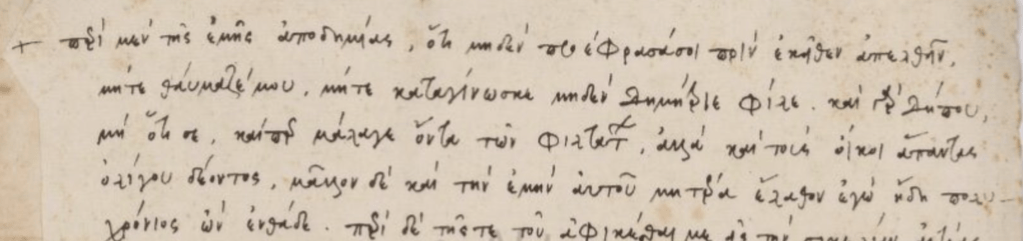 + περί μέν τῆς ἐμῆς ἀποδημίας, ὅτι μηδέν προέφρασάσοι πρίν ἐκεῖθεν ἀπελθεῖν,
μήτε θαύμαζέ μου, μήτε καταγίνωσκε μηδέν Δημήτριε φίλε. καί γάρ δήπου,
μή ὅτι σε, καίπερ μάλαγε ὄντα τῶν φιλτάτων, ἀλλά καί τούς οἴκοι ἅπαντας
ὀλίγου δέοντος, μᾶλλον δέ καί τήν ἐμήν αὐτοῦ μητέρα ἔλαθον ἐγώ ἤδη πολυ-
χρόνιος ὤν ἐνθάδε. περί δέ τῆστε τοῦ ἀφικέσθαι με